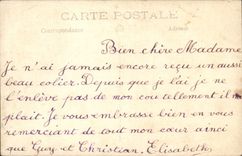 CARTE POSTALE
Correspondance Adresse
Bien chère Madame
Je n'ai jamais encore reçu un aussi
beau colier. Depuis que je l'ai je ne
l'enlève pas de mon cou tellement il me
plait. Je vous embrasse bien en vous
remerciant de tout mon cœur ainsi
que Guy et Christian, Elisabeth